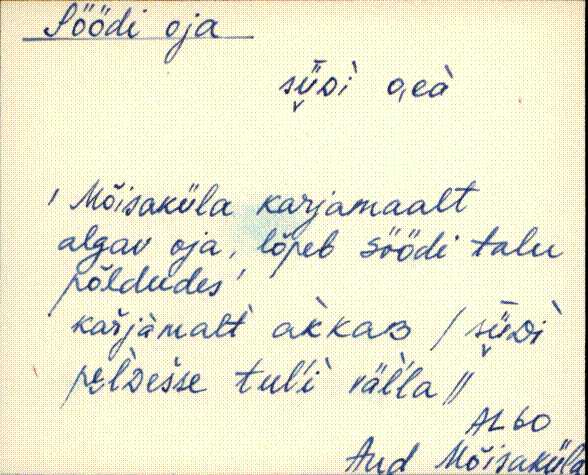 Söödi oja
sǖᴅì o̭eà
'Mõisaküla karjamaalt
algav oja, lõpeb Söödi talu
põldudes'
kařjàmalt àkkaʙ / sǖᴅì
pe̮l̀ᴅešse tul'i väl'l'a //
Aud Mõisaküla